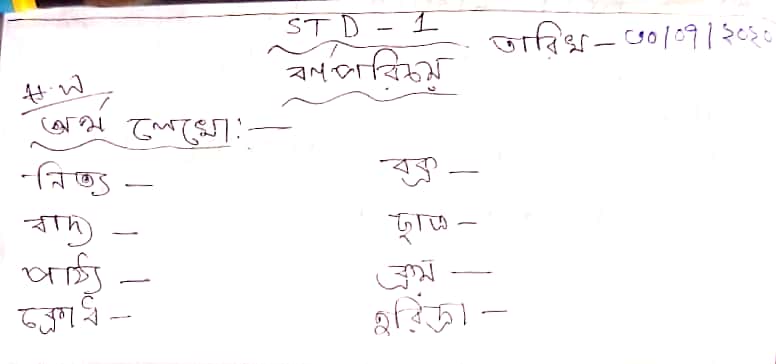 STD - 1
তারিখ - ৩০/০৭/২০২০
বর্ণপরিচয়
H.W
অর্থ লেখো:-
নিত্য - বক্র -
বাদ্য -
পাঠ্য - ক্রয় -
ক্রোধ - হরিদ্রা -